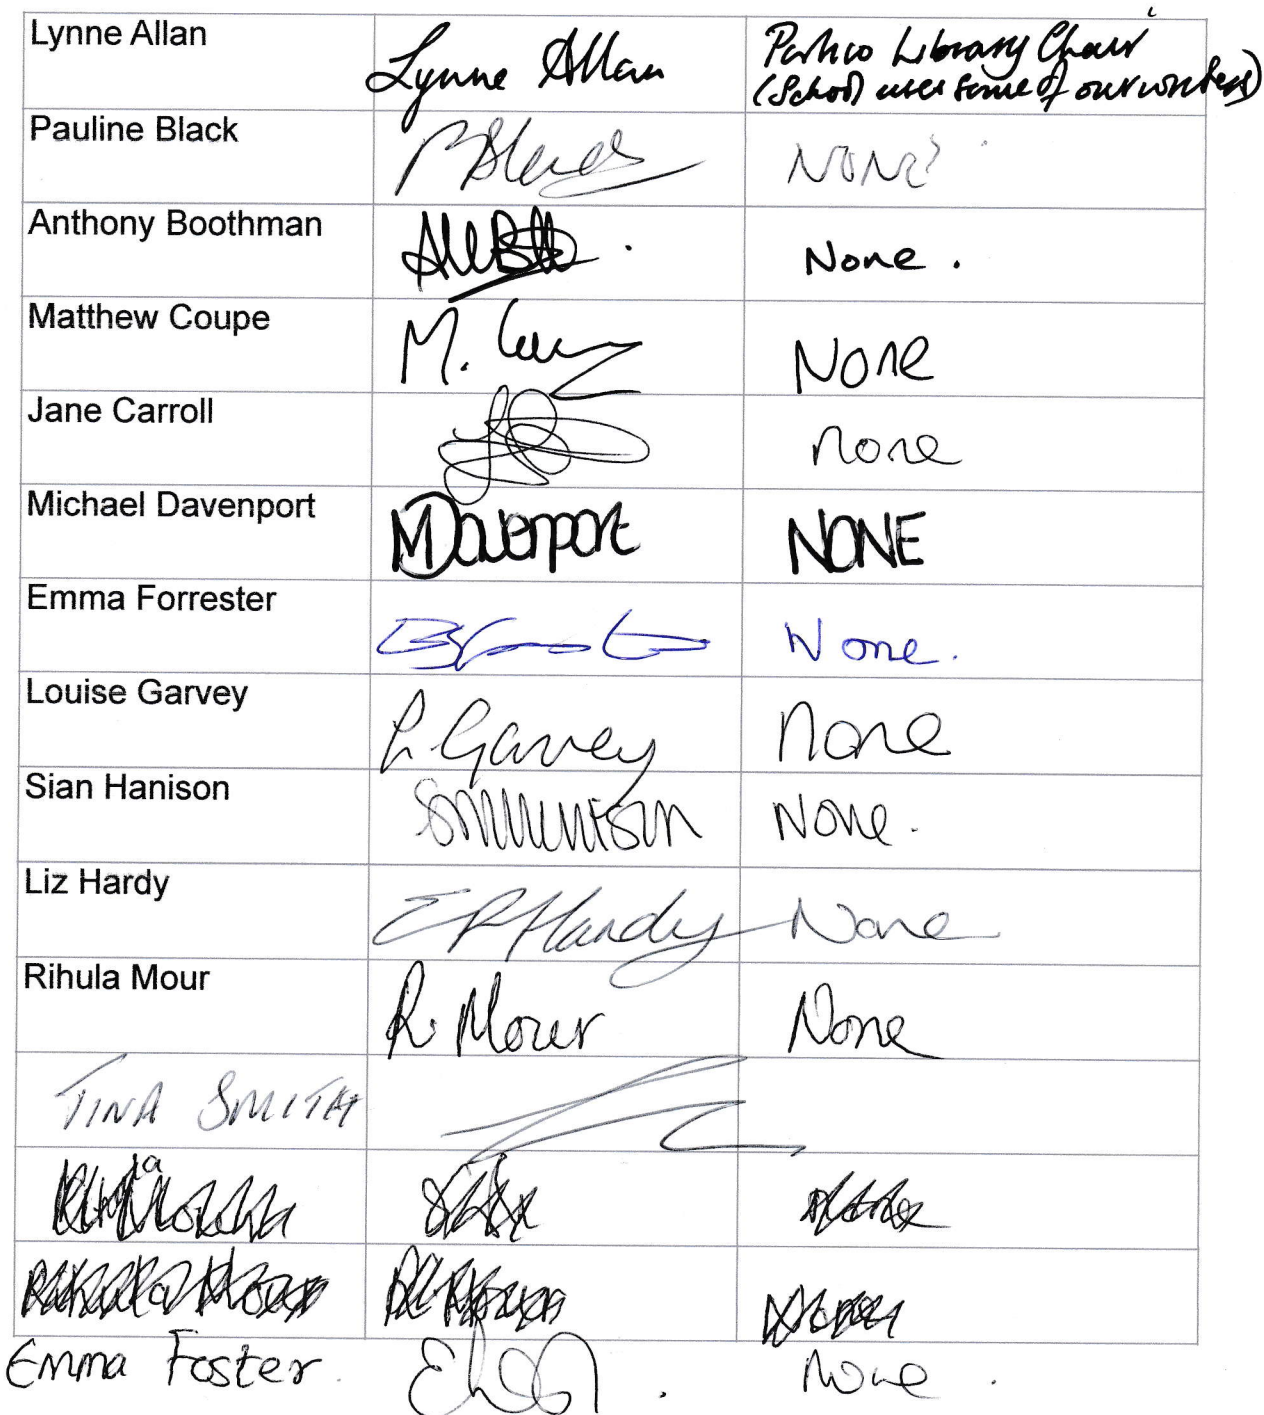 Lynne Allan Lynne Allan Library Chair
(School uses some of our workers)
Pauline Black None
Anthony Boothman None .
Matthew Coupe M. None
Jane Carroll none
Michael Davenport MDavenport NONE
Emma Forrester None.
Louise Garvey L Garvey None
Sian Hanison None.
Liz Hardy E Hardy None
Rihula Mour R. Mour None
TINA SMITH
Emma Foster. None .